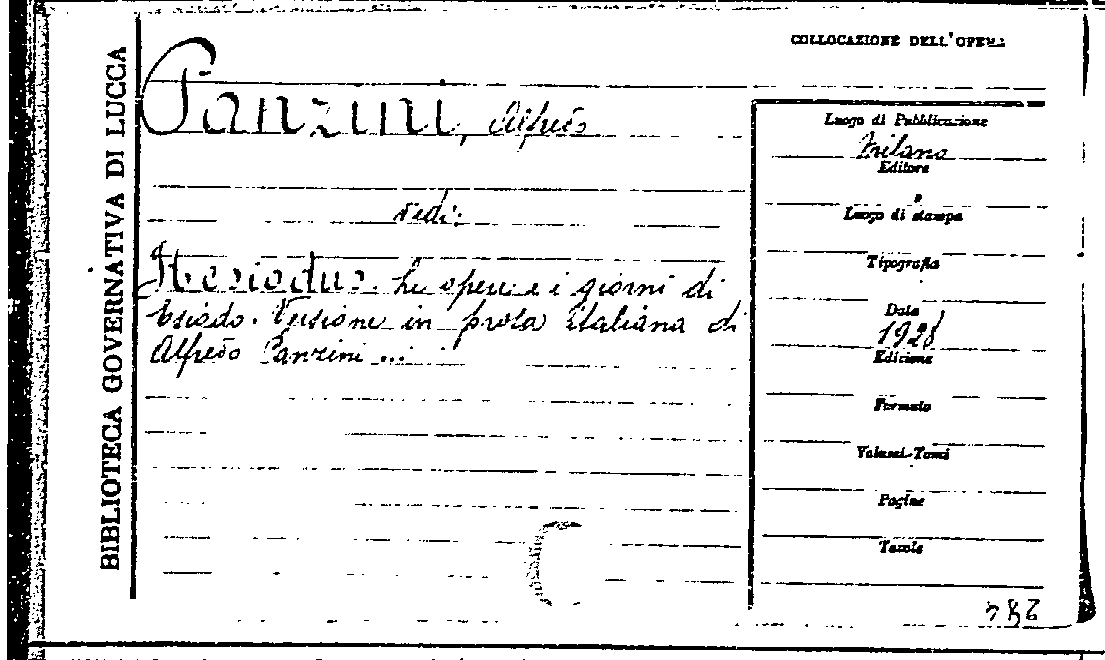 BIBLIOTECA GOVERNATIVA DI LUCCA
COLLOCAZIONE DELL'OPERA
Panzini, Alfredo
vedi:
Hesiodus. Le opere e i giorni di
Esiodo. Versione in prosa italiana di
Alfredo Panzini ...
Luogo di Pubblicazione
Milano
Editore
Luogo di stampa
Tipografia
Data
1928
Edizione
Formato
Volumi-Tomi
Pagine
Tavole